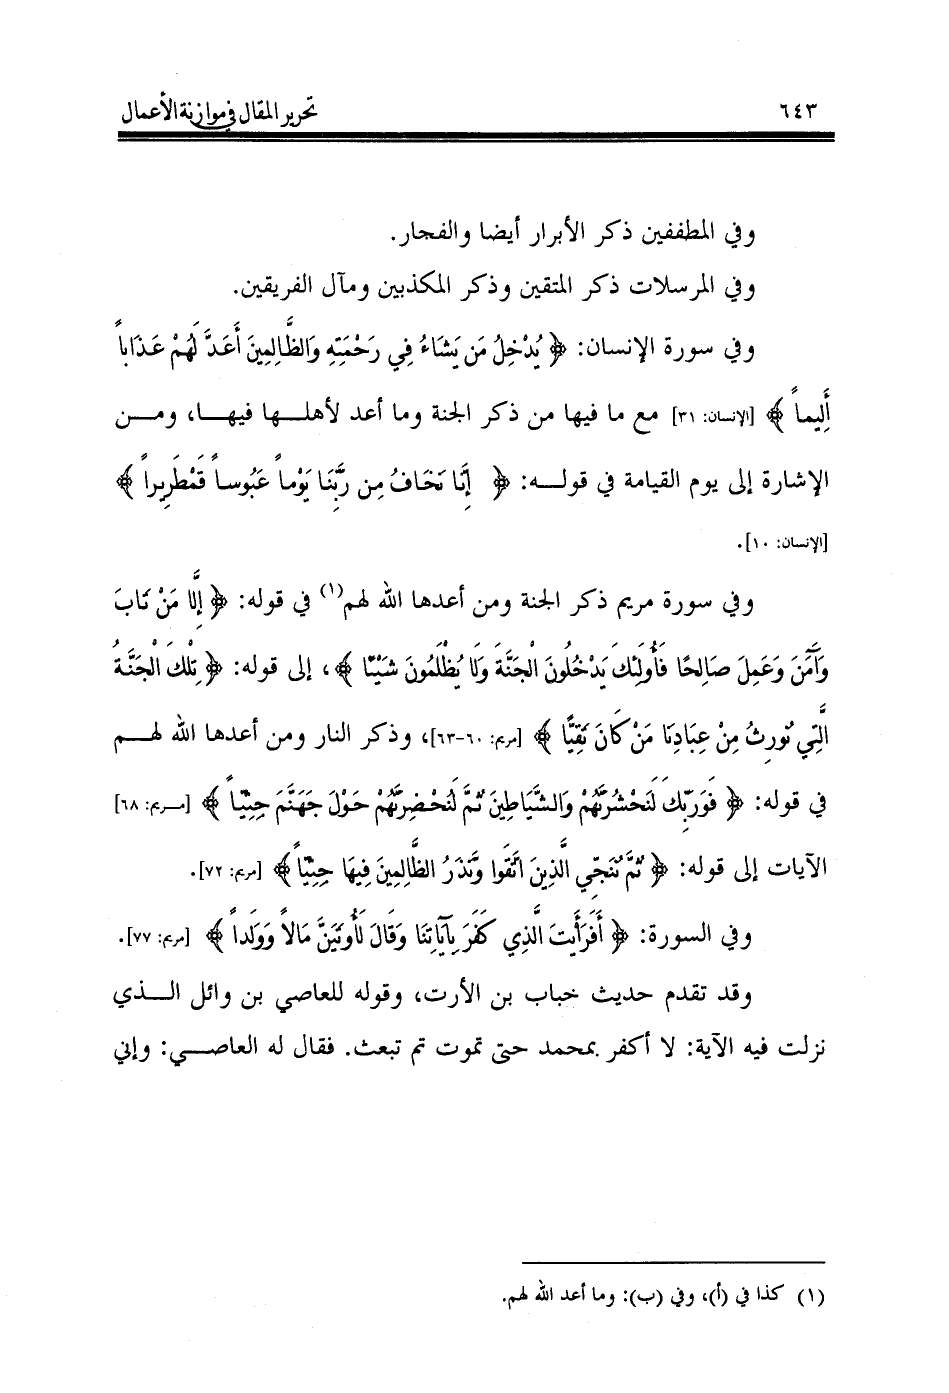 ٦٤٣ تحرير المقال في موازنة الأعمال
وفي المطففين ذكر الأبرار أيضا والفجار.
وفي المرسلات ذكر المتقين وذكر المكذبين ومآل الفريقين.
وفي سورة الإنسان: ﴿ يُدْخِلُ مَن يَشَاءُ فِي رَحْمَتِهِ وَالظَّالِمِينَ أَعَدَّ لَهُمْ عَذَاباً
أَلِيماً ﴾ [الإنسان: ٣١] مع ما فيها من ذكر الجنة وما أعد لأهلها فيها، ومن
الإشارة إلى يوم القيامة في قوله: ﴿ إِنَّا نَخَافُ مِن رَّبِّنَا يَوْماً عَبُوساً قَمْطَرِيراً ﴾
[الإنسان: ١٠].
وفي سورة مريم ذكر الجنة ومن أعدها الله لهم(١) في قوله: ﴿ إِلَّا مَنْ تَابَ
وَآمَنَ وَعَمِلَ صَالِحًا فَأُولَئِكَ يَدْخُلُونَ الْجَنَّةَ وَلَا يُظْلَمُونَ شَيْئًا ﴾، إلى قوله: ﴿ تِلْكَ الْجَنَّةُ
الَّتِي نُورِثُ مِنْ عِبَادِنَا مَنْ كَانَ تَقِيًّا ﴾ [مريم: ٦٠-٦٣]، وذكر النار ومن أعدها الله لهم
في قوله: ﴿ فَوَرَبِّكَ لَنَحْشُرَنَّهُمْ وَالشَّيَاطِينَ ثُمَّ لَنُحْضِرَنَّهُمْ حَوْلَ جَهَنَّمَ جِثِيّاً ﴾ [مريم: ٦٨]
الآيات إلى قوله: ﴿ ثُمَّ نُنَجِّي الَّذِينَ اتَّقَوا وَّنَذَرُ الظَّالِمِينَ فِيهَا جِثِيّاً ﴾ [مريم: ٧٢].
وفي السورة: ﴿ أَفَرَأَيْتَ الَّذِي كَفَرَ بِآيَاتِنَا وَقَالَ لَأُوتَيَنَّ مَالاً وَوَلَداً ﴾ [مريم: ٧٧].
وقد تقدم حديث خباب بن الأرت، وقوله للعاصي بن وائل الذي
نزلت فيه الآية: لا أكفر بمحمد حتى تموت ثم تبعث. فقال له العاصي: وإني
(١) كذا في (أ)، وفي (ب): وما أعد الله لهم.